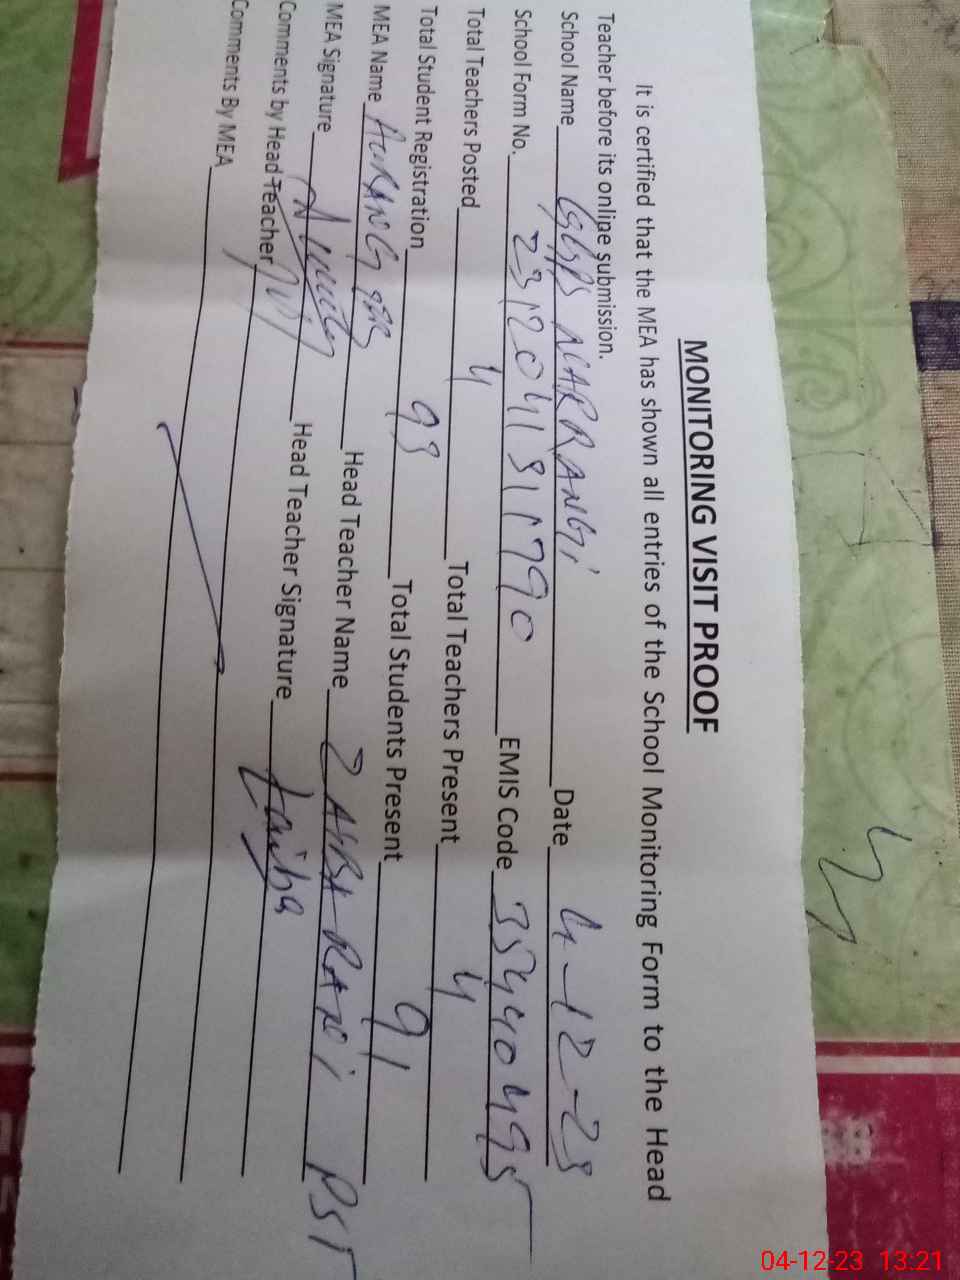 MONITORING VISIT PROOF
It is certified that the MEA has shown all entries of the School Monitoring Form to the Head
Teacher before its online submission.
School Name GGPS NARRANGi Date 4-12-23
School Form No. 2312041311790 EMIS Code 35440495
Total Teachers Posted 4 Total Teachers Present 4
Total Student Registration 93 Total Students Present 91
MEA Name AURANG ZEB Head Teacher Name ZAHRA RANi PST
MEA Signature Head Teacher Signature
Comments by Head Teacher
Comments By MEA
04-12-23 13:21